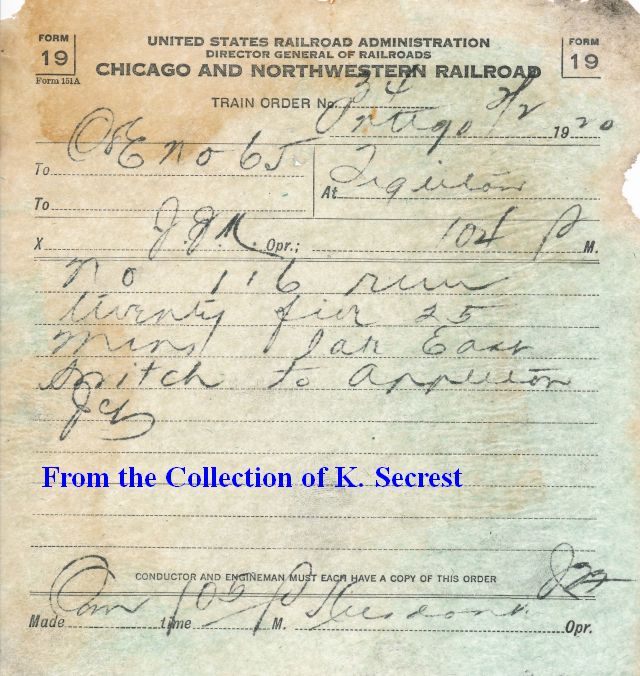 FORM 19 Form 151A
UNITED STATES RAILROAD ADMINISTRATION
DIRECTOR GENERAL OF RAILROADS
CHICAGO AND NORTHWESTERN RAILROAD
FORM 19
TRAIN ORDER No. 34
Antigo 2/2 1920
To C&E no 65 At Tigerton
To
X J.J.M. Opr.; 104 P M.
no 116 run
twenty five 25
mins late East
Switch to Appleton
From the Collection of K. Secrest
CONDUCTOR AND ENGINEMAN MUST EACH HAVE A COPY OF THIS ORDER
Made Com time 105 P M. Opr.